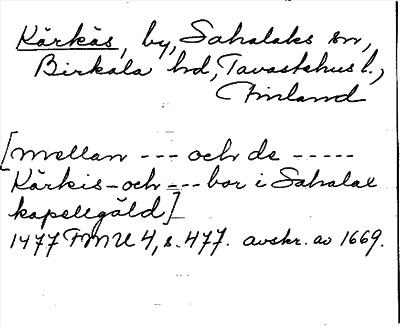 Kärkäs, by, Sahalaks sn,
Birkala hd, Tavastehus l.,
Finland
[mellan --- och de -----
Kärkis-och --- bor i Sahalax
kapellgäld]
1477 FMU 4, s. 477. avskr. av 1669.